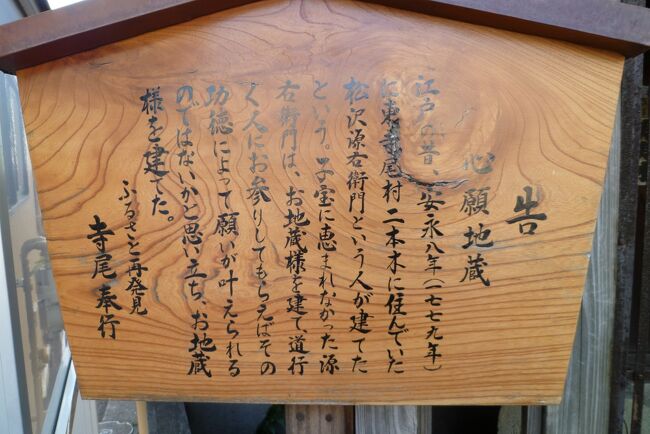 告
心願地蔵
江戸の昔、安永八年(一七七九年)
に東寺尾村二本木に住んでいた
松沢源右衛門という人が建てた
という。子宝に恵まれなかった源
右衛門は、お地蔵様を建て、道行
く人にお参りしてもらえばその
功徳によって願いが叶えられる
のではないかと思い立ち、お地蔵
様を建てた。
ふるさと再発見
寺尾奉行